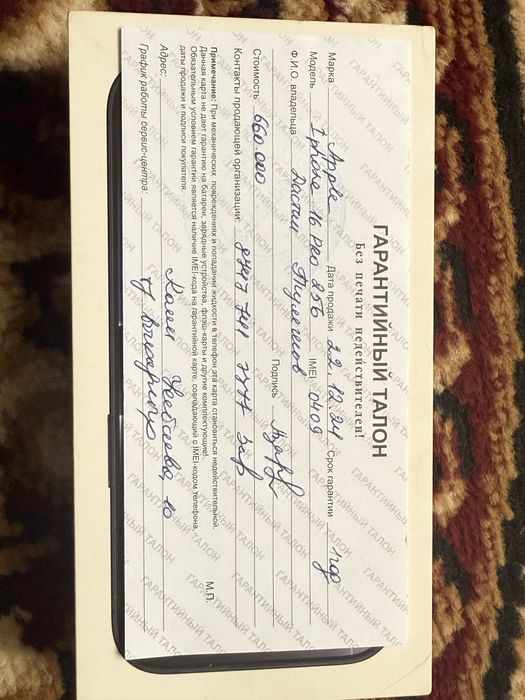 ГАРАНТИЙНЫЙ ТАЛОН
Без печати недействителен!
Марка Apple Дата продажи 22.12.24 Срок гарантии 1 год
Модель Iphone 16 pro 256 IMEI 0409
Ф.И.О. владельца Дастан
Подпись
Стоимость 660.000
Контакты продающей организации:
Примечание: При механических повреждениях и попадании жидкости в телефон эта карта становиться недействительной.
Данная карта не дает гарантию на батареи, зарядные устройства, флэш-карты и другие комплектующие!
Обязательным условием гарантии является наличие IMEI-кода на гарантийной карте, совпадающий с IMEI-кодом телефона,
даты продажи и подписи покупателя.
М.П.
Адрес:
График работы сервис-центра: